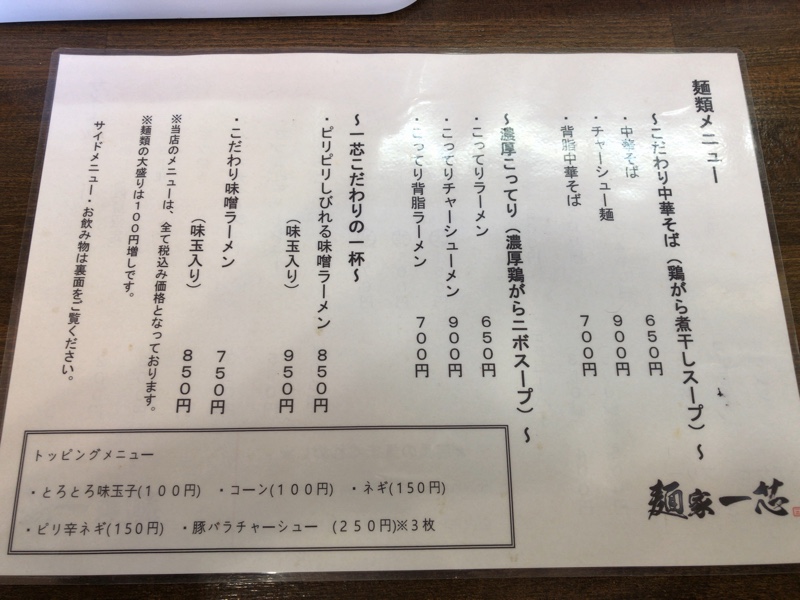 麺類メニュー
～こだわり中華そば（鶏がら煮干しスープ）～
・中華そば　６５０円
・チャーシュー麺　９００円
・背脂中華そば　７００円
～濃厚こってり（濃厚鶏がらニボスープ）～
・こってりラーメン　６５０円
・こってりチャーシューメン　９００円
・こってり背脂ラーメン　７００円
～一芯こだわりの一杯～
・ピリピリしびれる味噌ラーメン　８５０円
（味玉入り）　９５０円
・こだわり味噌ラーメン　７５０円
（味玉入り）　８５０円
※当店のメニューは、全て税込み価格となっております。
※麺類の大盛りは１００円増しです。
サイドメニュー・お飲み物は裏面をご覧ください。
トッピングメニュー
・とろとろ味玉子(１００円)　・コーン(１００円)　・ネギ(150円)
・ピリ辛ネギ(150円)　・豚バラチャーシュー　(２５０円)※３枚
麺家一芯